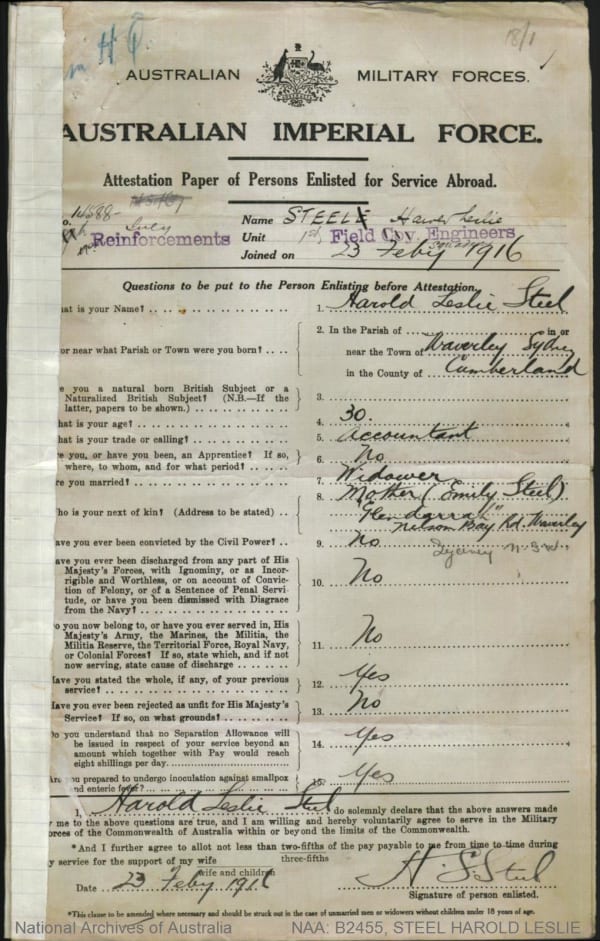 H Q
18/1
AUSTRALIAN MILITARY FORCES.
AUSTRALIAN IMPERIAL FORCE.
Attestation Paper of Persons Enlisted for Service Abroad.
o. 14588 Name STEEL Harold Leslie
July Reinforcements Unit 1st Field Coy. Engineers
Joined on 23 Feby 1916
Questions to be put to the Person Enlisting before Attestation.
at is your Name? 1. Harold Leslie Steel
2. In the Parish of in or
or near what Parish or Town were you born? near the Town of Waverley Sydney
in the County of Cumberland
e you a natural born British Subject or a
Naturalized British Subject? (N.B.—If the
latter, papers to be shown.) 3.
hat is your age? 4. 30.
hat is your trade or calling? 5. Accountant
re you, or have you been, an Apprentice? If so,
where, to whom, and for what period? 6. No
re you married? 7. Widower
8. Mother (Emily Steel)
ho is your next of kin? (Address to be stated) "Glendarrah"
Nelson Bay Rd. Waverley
ave you ever been convicted by the Civil Power? 9. No Sydney N.S.W.
ave you ever been discharged from any part of His
Majesty's Forces, with Ignominy, or as Incor-
rigible and Worthless, or on account of Convic-
tion of Felony, or of a Sentence of Penal Servi-
tude, or have you been dismissed with Disgrace
from the Navy? 10. No
o you now belong to, or have you ever served in, His
Majesty's Army, the Marines, the Militia, the
Militia Reserve, the Territorial Force, Royal Navy,
or Colonial Forces? If so, state which, and if not
now serving, state cause of discharge 11. No
ave you stated the whole, if any, of your previous
service? 12. Yes
ave you ever been rejected as unfit for His Majesty's
Service? If so, on what grounds? 13. No
o you understand that no Separation Allowance will
be issued in respect of your service beyond an
amount which together with Pay would reach
eight shillings per day. 14. Yes
re you prepared to undergo inoculation against smallpox
and enteric fever? 15. Yes
I, Harold Leslie Steel do solemnly declare that the above answers made
y me to the above questions are true, and I am willing and hereby voluntarily agree to serve in the Military
orces of the Commonwealth of Australia within or beyond the limits of the Commonwealth.
*And I further agree to allot not less than two-fifths of the pay payable to me from time to time during
three-fifths
y service for the support of my wife
wife and children
Date 23 Feby 1916 H. L. Steel
Signature of person enlisted.
*This clause to be amended where necessary and should be struck out in the case of unmarried men or widowers without children under 18 years of age.
National Archives of Australia NAA: B2455, STEEL HAROLD LESLIE